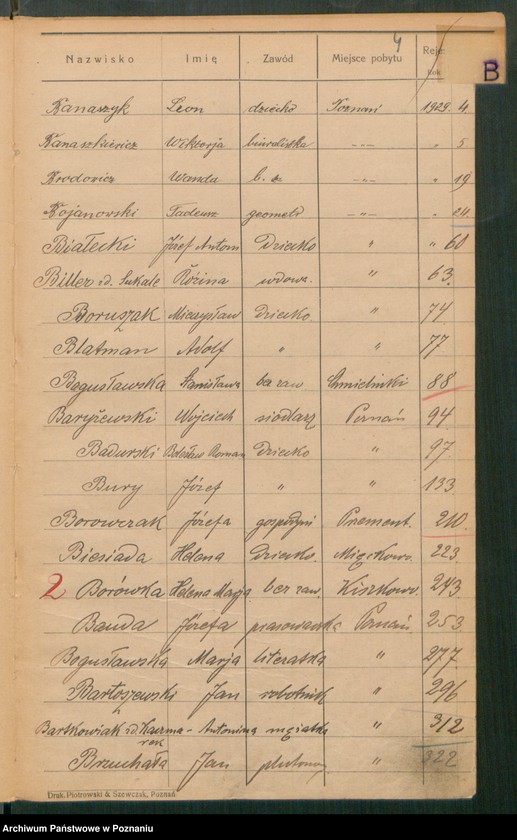 4
B
Nazwisko Imię Zawód Miejsce pobytu Rejestr
Banaszyk Leon dziecko Poznań 1929. 4.
Banaszkiewicz Wiktorja biuralistka -„- „ 5
Brodowicz Wanda b. z. -„- „ 19
Bojanowski Tadeusz geometr -„- „ 24.
Białecki Józef Antoni Dziecko „ „ 60
Biller zd. Sukale Róźina wdowa. „ 63.
Boruszak Mieczysław Dziecko. „ 74
Blatman Adolf „ „ 77
Bogusławska Stanisława bez zaw. 88
Baryżewski Wojciech siodlarz Poznań 94
Badurski Bolesław Roman Dziecko „ 97.
Bury Józef „ „ 133
Borowczak Józefa gospodyni Prement. 210.
Biesiada Helena Dziecko. 223.
2 Borówka Helena Marja bez zaw. Kiszkowo. 243
Banda Józefa prasowaczka Poznań. 253.
Bogusławska Marja literatka „ 277
Bartoszewski Jan robotnik „ 296
Bartkowiak zd. Kaczmarek Antonina mężatka „ 312
Brzuchała Jan plutonowy „ 322
Druk. Piotrowski & Szewczak, Poznań
Archiwum Państwowe w Poznaniu
szukajwarchiwach.gov.pl